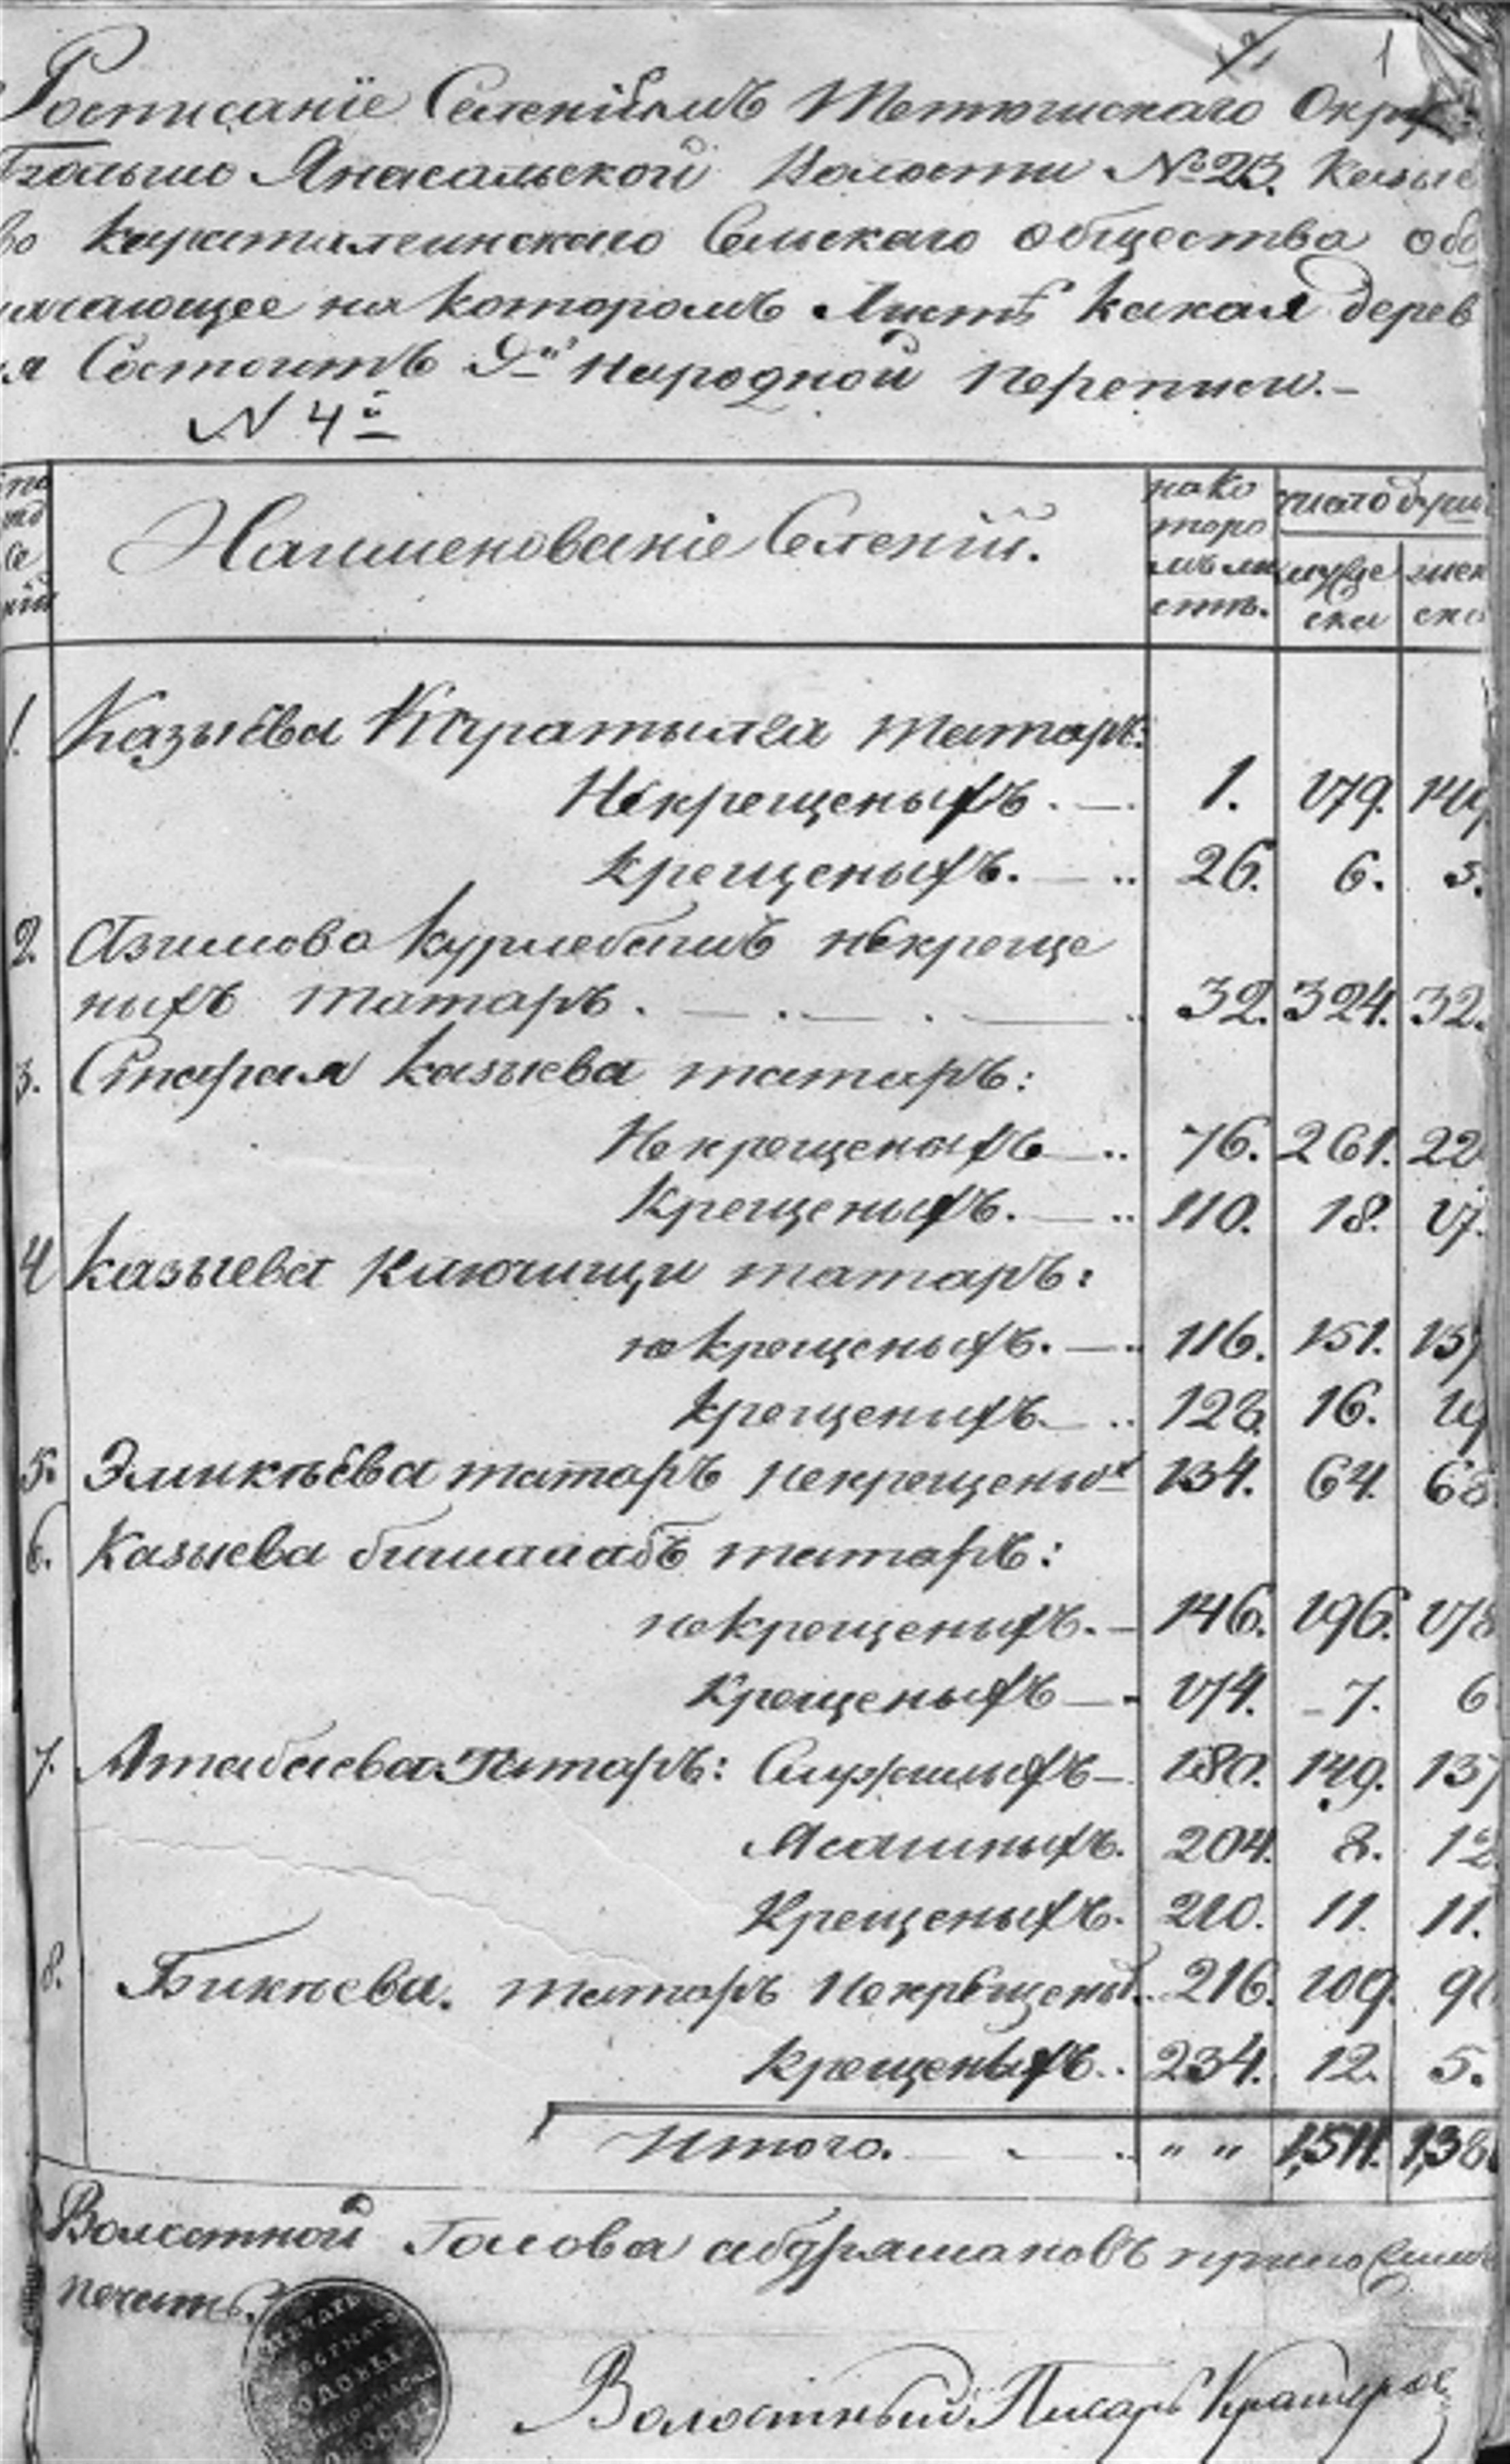 1
Росписаніе Селеніямъ Тетюшскаго Окру
Больше Янасальской Волости № 23. Казые
во Караталгинскаго Сельскаго общества обо
начающее на которомъ Листѣ какая дерев
я Состоитъ 9й Народной переписи.
N 4й
Наименованіе Селеній.
на ко
торо
мъ ли
стѣ.
число душъ
муже
ска
жен
ска
1. Казыева Каратылга татаръ:
Некрещеныхъ. — 1. 179. 149
Крещеныхъ. — 26. 6. 5.
2. Азимово Курлебашъ некреще
ныхъ татаръ. — 32. 324. 32
3. Старая Казыева татаръ:
Некрещеныхъ — 76. 261. 22
Крещеныхъ. — 110. 18. 17.
4 Казыева Ключищи татаръ:
некрещеныхъ. — 116. 151. 15
Крещеныхъ — 128. 16. 19
5. татаръ некрещеных 134. 64. 68
6. Казыева татаръ:
некрещеныхъ. — 146. 196. 178
Крещеныхъ — 174. 7. 6
7. Атабаева Татаръ: Служилыхъ — 180. 149. 137
Ясашныхъ. 204. 8. 12
Крещеныхъ. 210. 11. 11.
8. Бикнева. татаръ Некрещены. 216. 109. 9
Крещеныхъ. 234. 12. 5.
Итого. — " " 1,511. 1,38
Волостной Голова Абдряшановъ приложилъ
печать.
Волостный Писарь